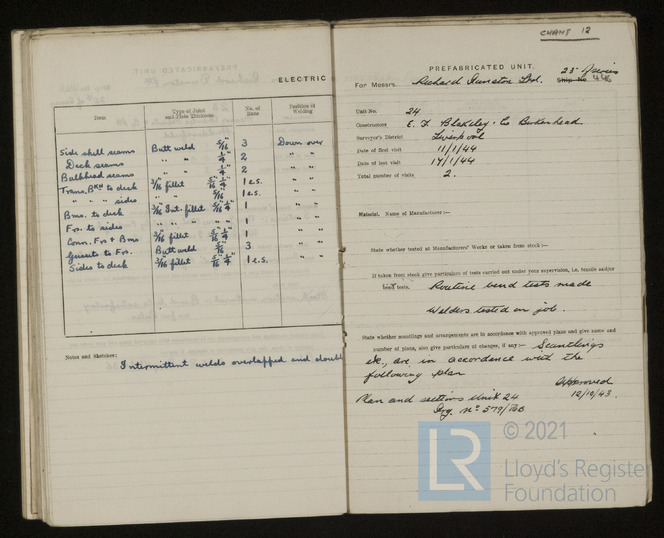 ELECTRIC
Item
Type of Joint and Plate Thickness
No. of Runs
Position of Welding
Side shell seams Butt weld 5/16 3 Down over
Deck seams " " 1/4 2 " "
Bulkhead seams " " 1/4 2 " "
Trans. Bkh to deck 3/16 fillet 5/16 1/4 1 e.s. " "
" " " sides " " 5/16 1 e.s. " "
Bms. to deck 3/16 Int. fillet 5/16 1/4 1 " "
Frs. to sides " " " " " 1 " "
Conn. Frs & Bms 3/16 fillet 5/16 1/4 1 " "
Gussets to Frs. Butt weld 5/16 3 " "
Sides to deck 3/16 fillet 5/16 1/4 1 e.s. " "
Notes and Sketches:
Intermittent welds overlapped and doubl
CHANT 12
PREFABRICATED UNIT.
For Messrs. Richard Dunston Ltd. Ship No
Unit No. 24
Constructors E. F. Blakeley & Co Birkenhead.
Surveyor's District Liverpool
Date of first visit 11/1/44
Date of last visit 17/1/44
Total number of visits 2.
Material. Name of Manufacturer :—
State whether tested at Manufacturers' Works or taken from stock :—
If taken from stock give particulars of tests carried out under your supervision, i.e. tensile and/or
bend tests. Routine bend tests made
Welders tested on job.
State whether mountings and arrangements are in accordance with approved plans and give name and
number of plans, also give particulars of changes, if any :— Scantlings
etc., are in accordance with the
following plan
Approved
Plan and sections Unit 24 12/10/43.
Drg. No 579/
© 2021
LR
Lloyd's Register
Foundation